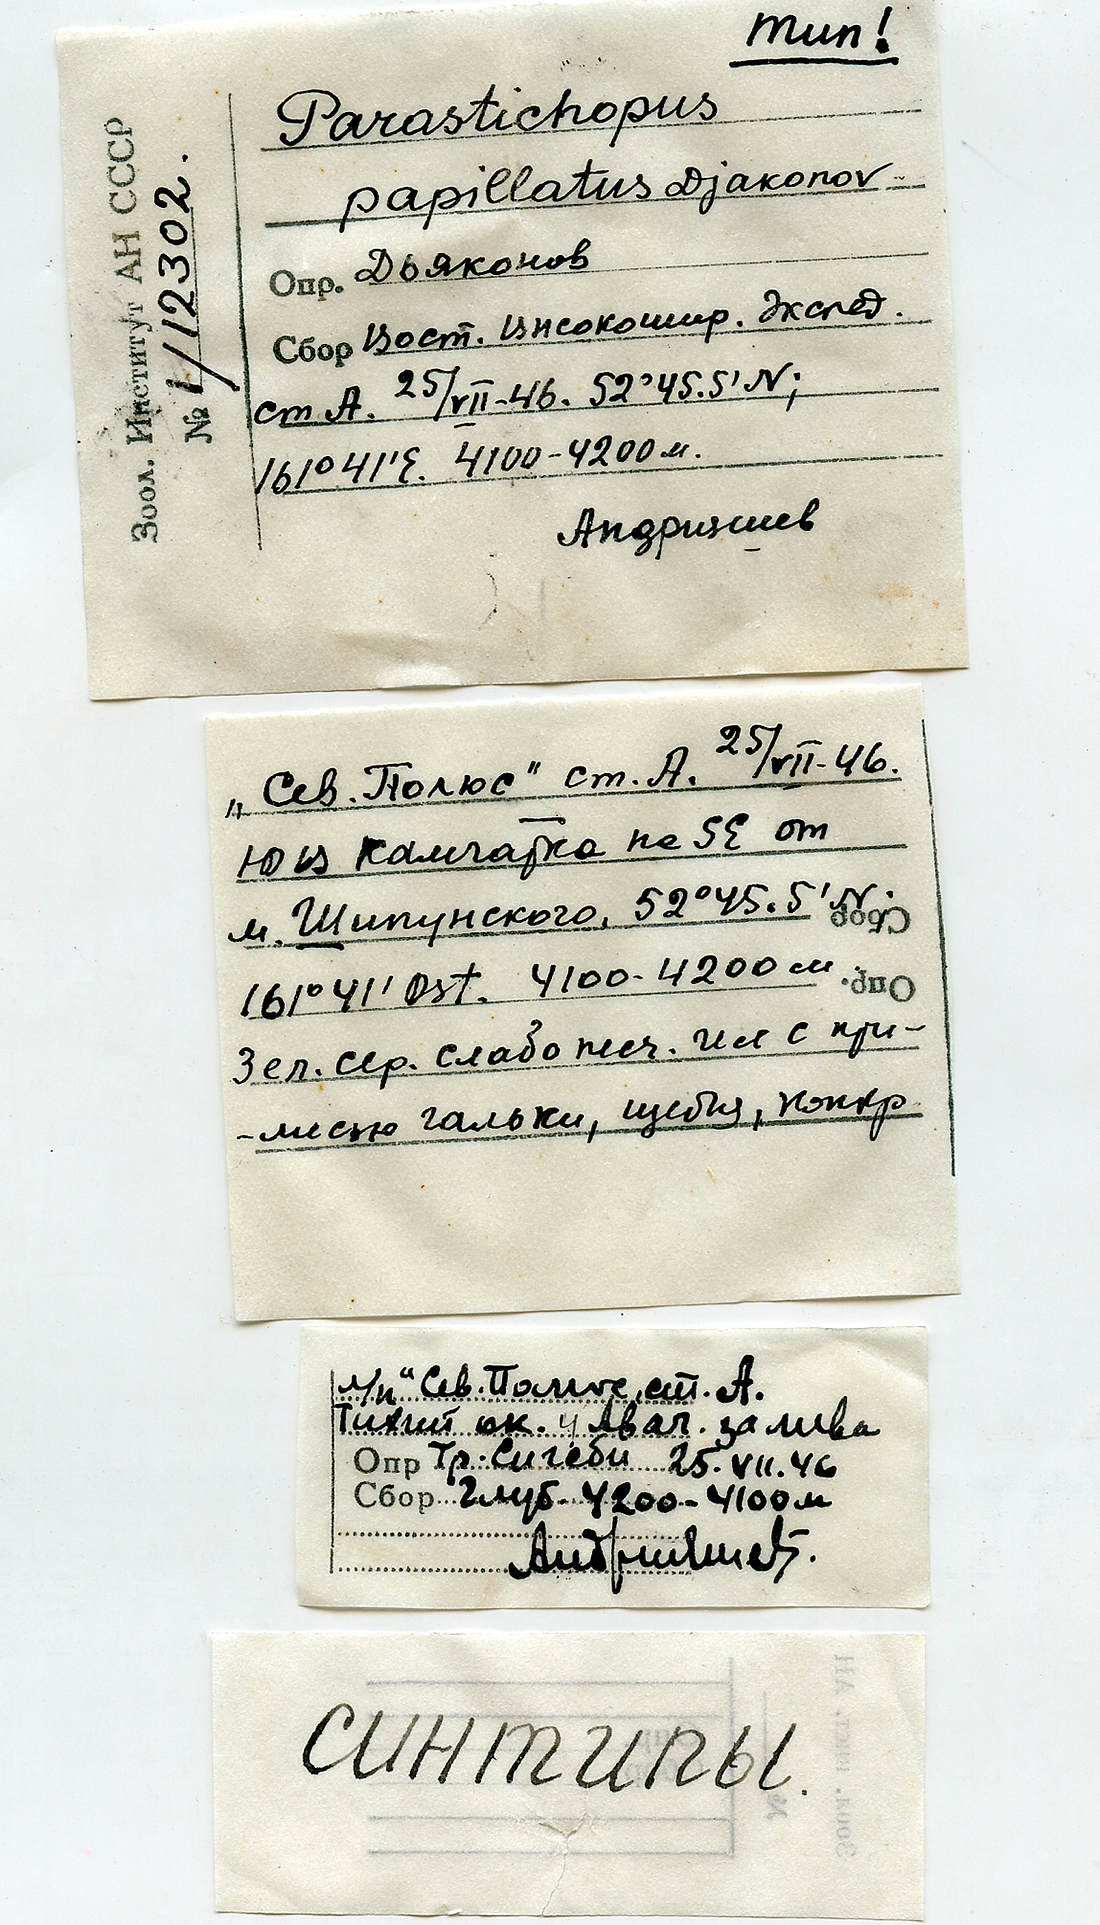 тип!
Зоол. Институт АН СССР
№ 1/12302.
Parastichopus
papillatus Djakonov
Опр. Дьяконов
Сбор Вост. Высокошир. Экспед.
ст. А. 25/VII-46. 52°45.5'N;
161°41'E. 4100-4200 м.
Андрияшев
„Сев. Полюс" ст. А. 25/VII-46.
Камчатка на SE от
м. Шипунского, 52°45.5'N;
Сбор
161°41' Ost. 4100-4200 м.
Опр.
Зел. сер. слабо песч. ил с при-
-месью гальки, щебня, конкр
л/п "Сев. Полюс, ст. А.
Тихий ок. у Авач. залива
Опр Тр. Сигсби 25.VII.46
Сбор Глуб. 4200-4100 м
Андрияшев.
СИНТИПЫ.
Зоол. инст. АН
№